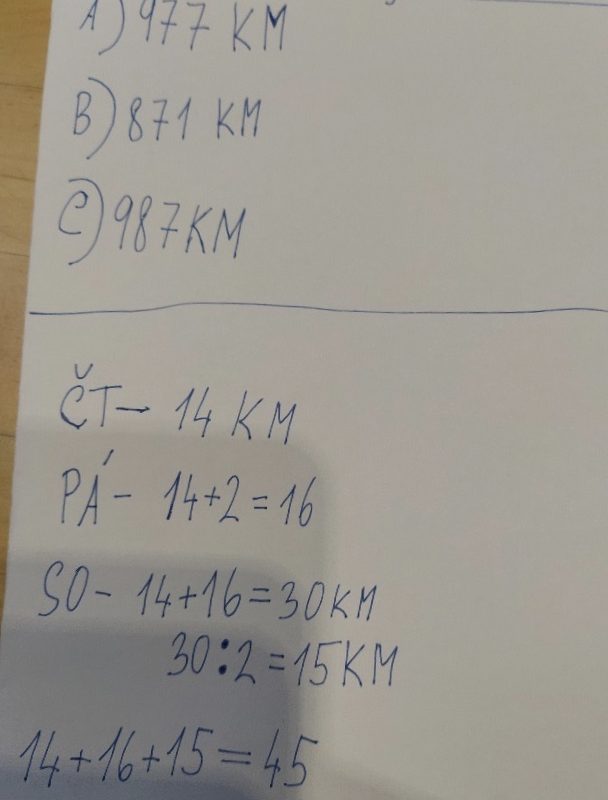 A) 977 KM
B) 871 KM
C) 987 KM
ČT- 14 KM
PÁ- 14+2=16
SO- 14+16=30KM
30:2=15KM
14+16+15=45